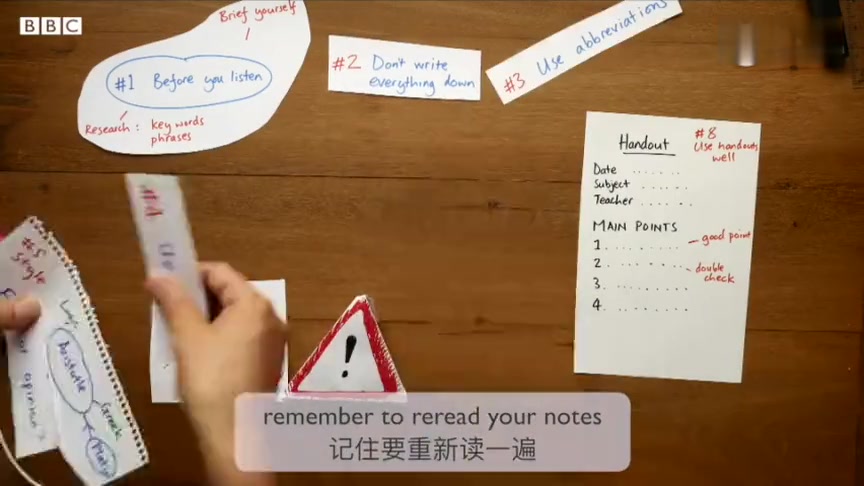 BBC
Brief yourself
#1 Before you listen
Research: key words
phrases
#2 Don't write
everything down
#3 Use abbreviations
#4
#5
Style
Aristotle
Greek
opinion
Handout
#8
Use handouts
well
Date ......
Subject ......
Teacher ......
MAIN POINTS
1 ........ – good point
2 ........ – double
check
3 ........
4 ........
!
remember to reread your notes
记住要重新读一遍